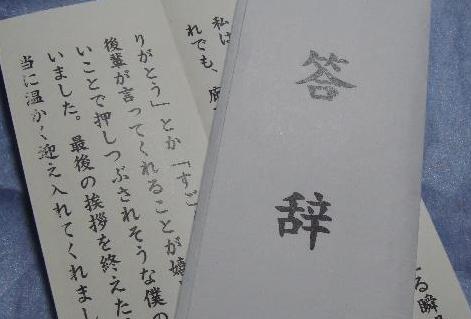 答辞
る瞬
私は
れでも、
りがとう」とか「すご
後輩が言ってくれることが嬉
いことで押しつぶされそうな僕の
いました。最後の挨拶を終えた
当に温かく迎え入れてくれまし